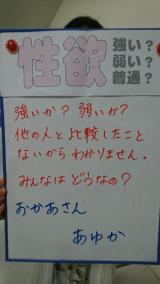 性欲
強い？
弱い？
普通？
強いか？ 弱いか？
他の人と比較したこと
ないからわかりません。
みんなはどうなの？
おかあさん
あゆか